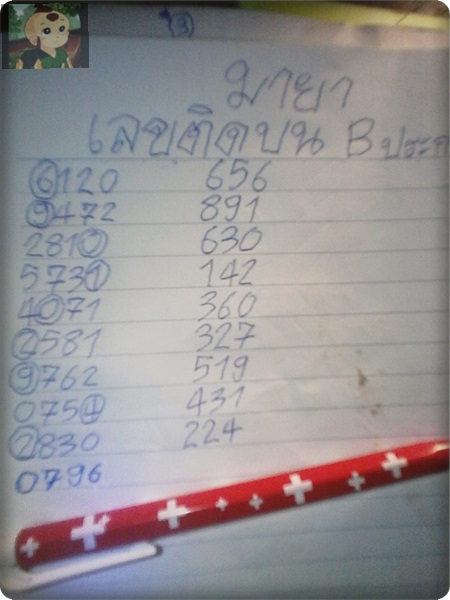 (3)
มายา
เลขติดบน B
6120 656
9472 891
2810 630
5731 142
4071 360
2581 327
9762 519
0754 431
2830 224
0796